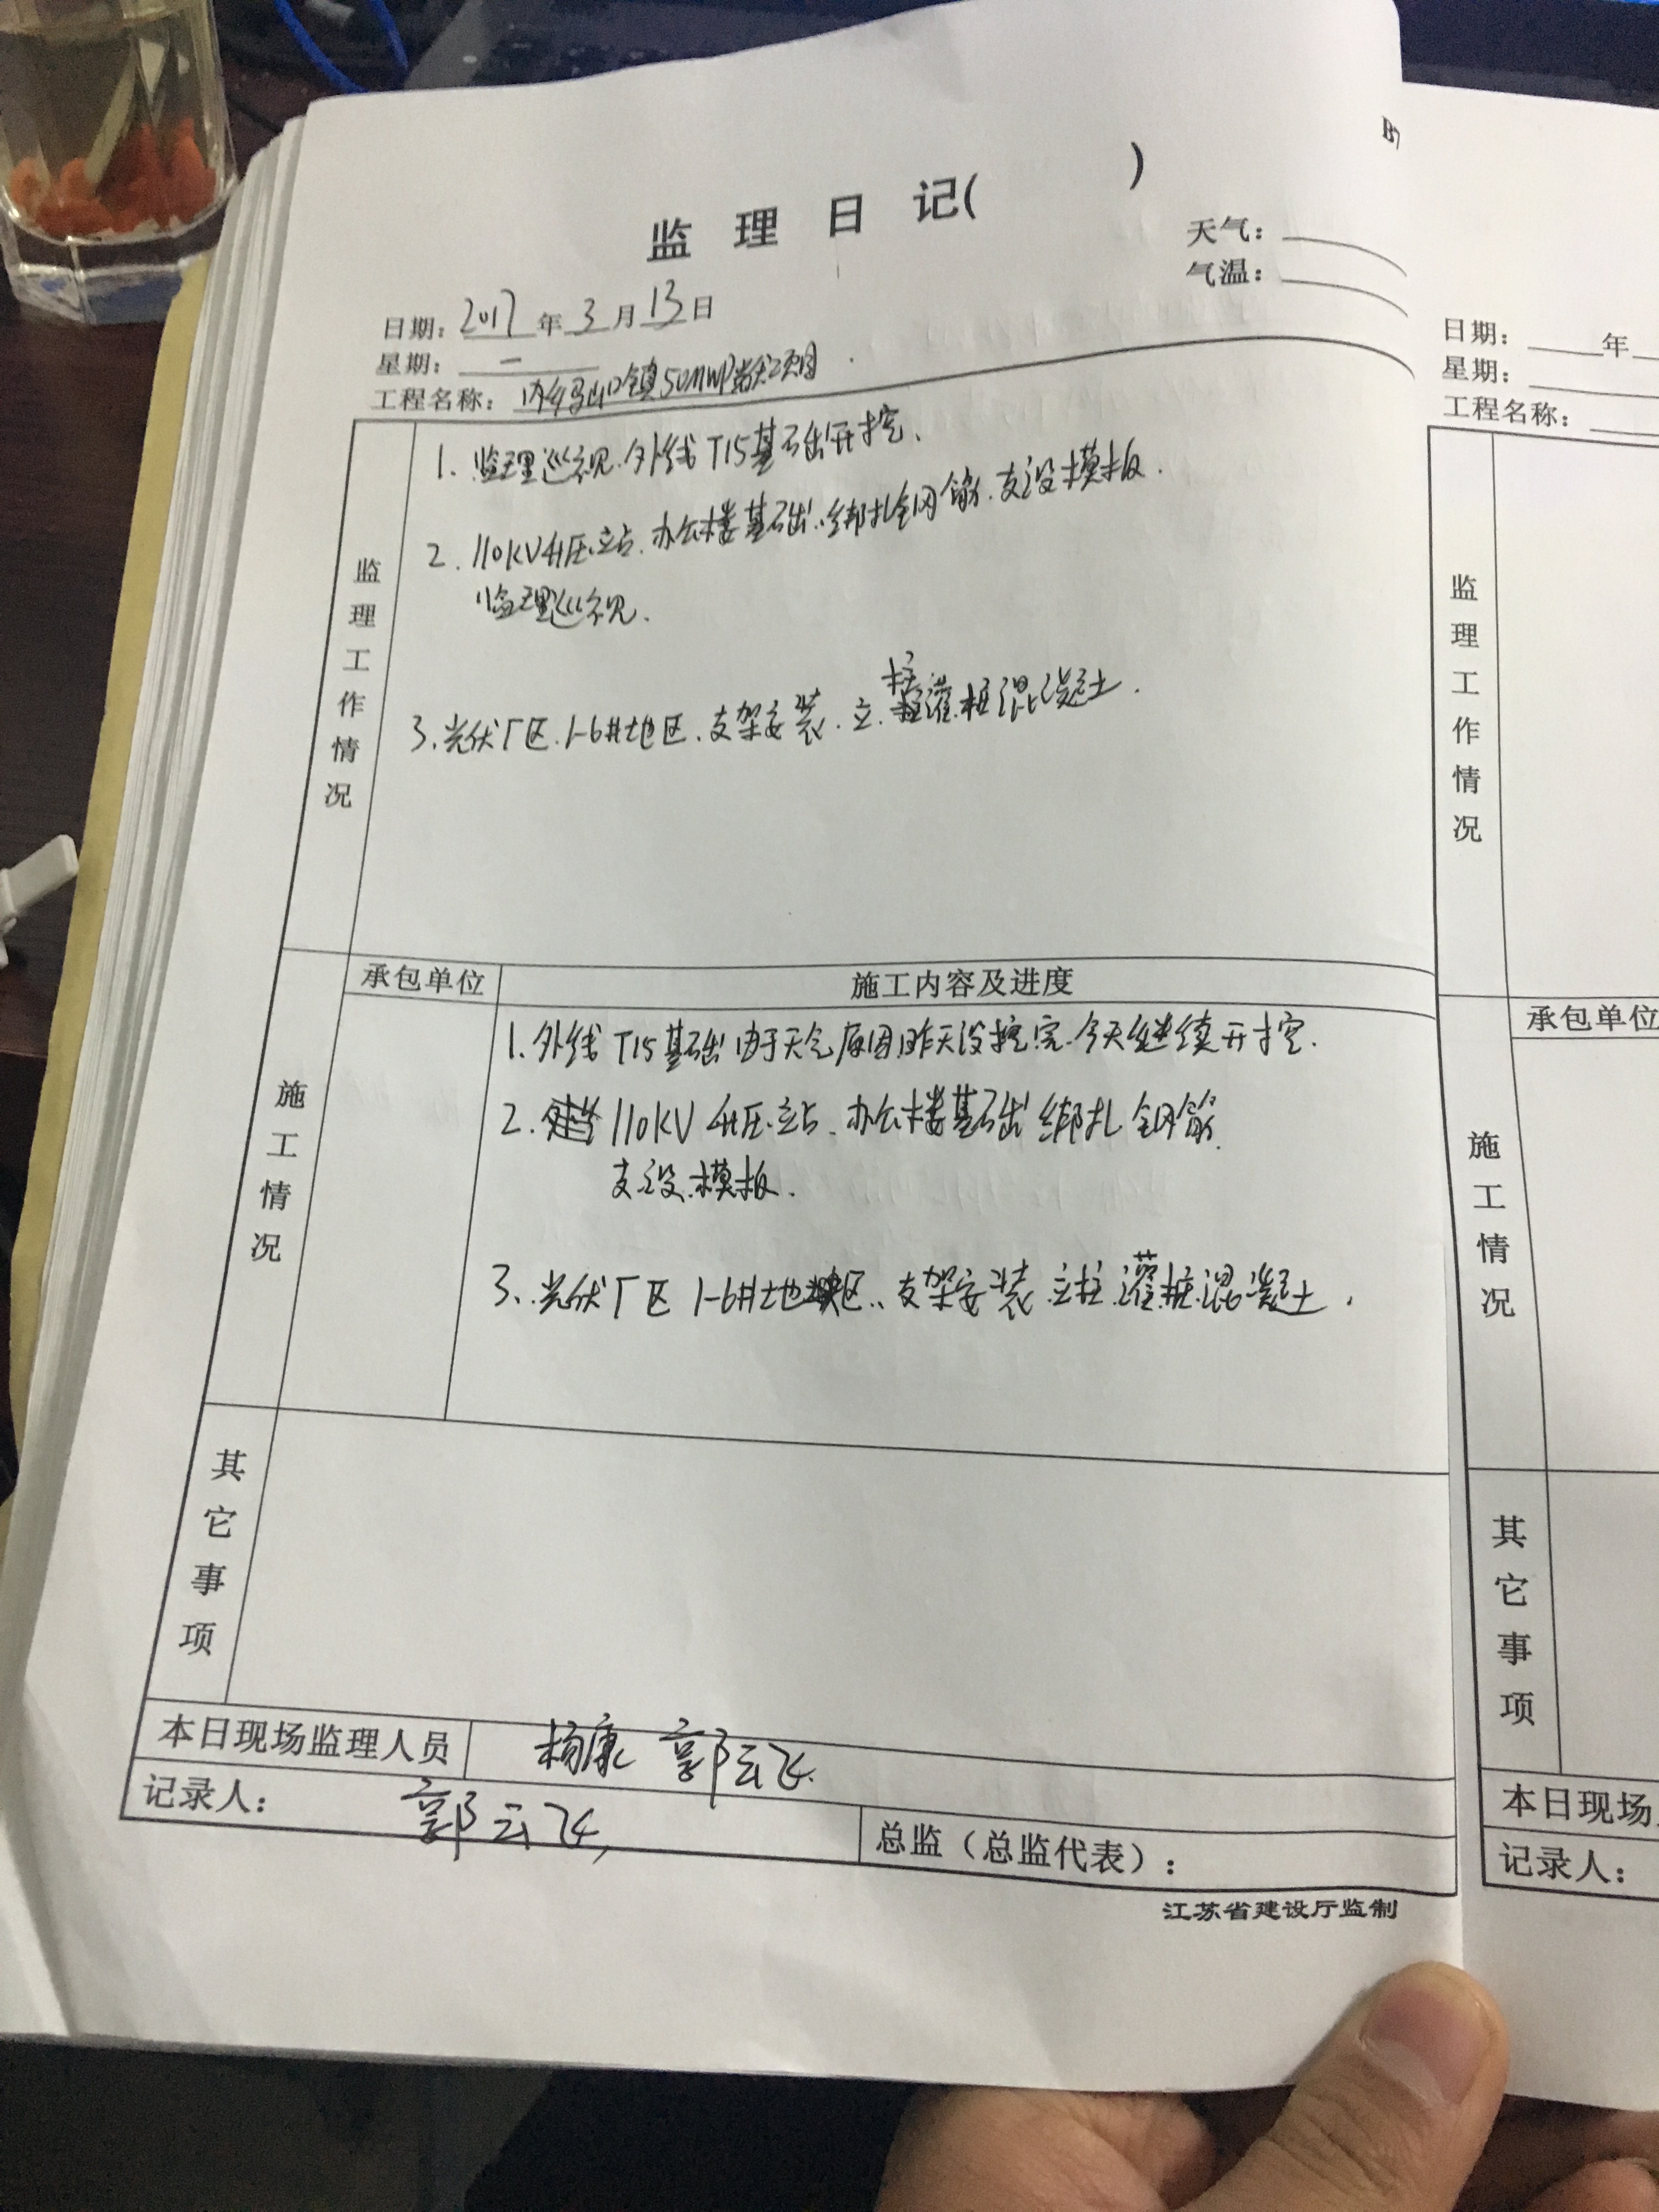 B7
监理日记( )
天气：
气温：
日期：2017年3月13日
星期：一
工程名称：内乡马山口镇50MWP光伏项目
监理工作情况
1. 监理巡视.外线T15基础开挖.
2. 110KV升压站.办公楼基础.绑扎钢筋.支设模板.
监理巡视.
3、光伏厂区.1-6#地区.支架安装.立柱灌桩混凝土.
施工情况
承包单位 施工内容及进度
1.外线T15基础由于天气原因昨天没挖完.今天继续开挖.
2. 110KV升压站.办公楼基础绑扎钢筋.
支设模板.
3、光伏厂区1-6#地区、支架安装.立柱灌桩混凝土.
其它事项
本日现场监理人员 杨康 郭云飞.
记录人：郭云飞 总监（总监代表）：
江苏省建设厅监制
日期：年
星期：
工程名称：
监理工作情况
施工情况
承包单位
其它事项
本日现场
记录人：